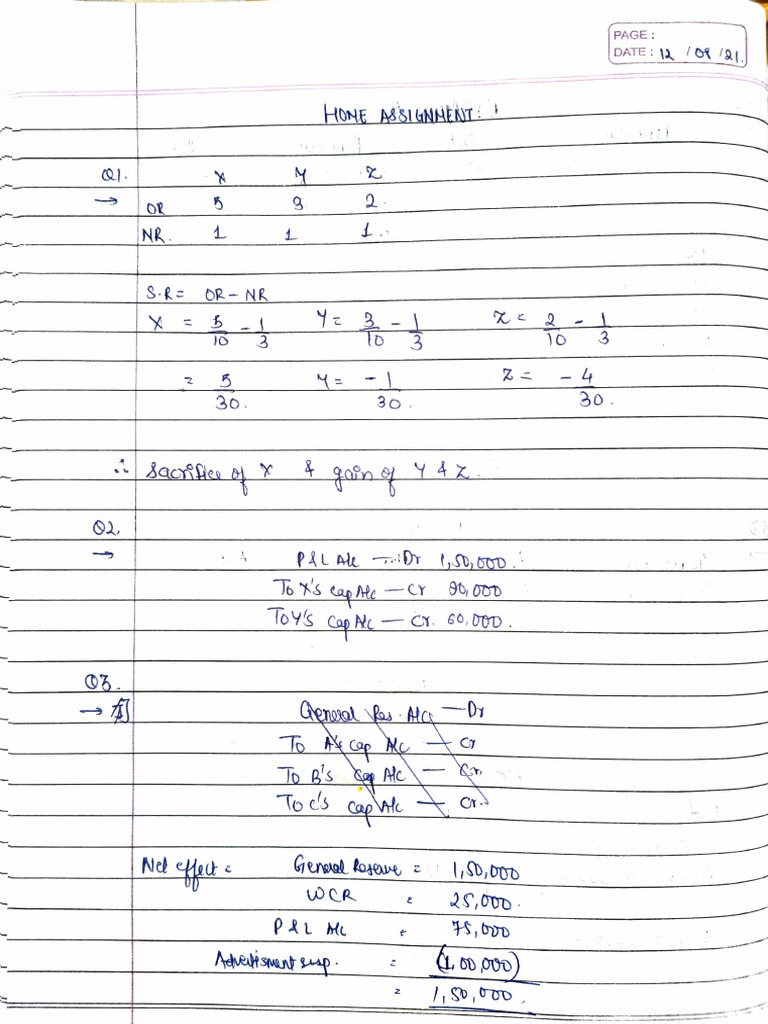 PAGE :
DATE : 12 / 08 / 21.
HOME ASSIGNMENT : 1
Q1. X Y Z
→ OR 5 3 2
NR. 1 1 1 .
S.R = OR - NR
X = 5/10 - 1/3 Y = 3/10 - 1/3 Z = 2/10 - 1/3
= 5/30. Y = - 1/30. Z = - 4/30.
∴ Sacrifice of X & gain of Y & Z.
Q2.
→ P & L A/c — Dr 1,50,000.
To X's cap A/c — Cr 90,000
To Y's cap A/c — Cr. 60,000.
Q3.
→ General Res. A/c — Dr
To A's cap A/c — Cr
To B's cap A/c — Cr.
To C's cap A/c — Cr.
Net effect = General Reserve = 1,50,000
WCR = 25,000.
P & L A/c = 75,000
Advertisment susp. = (1,00,000)
= 1,50,000.